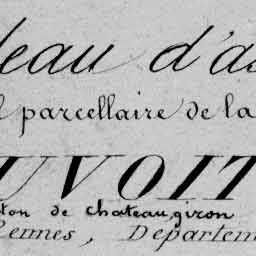 leau d'as
l parcellaire de la
UVOIT
ton de chateaugiron
Rennes, Departem